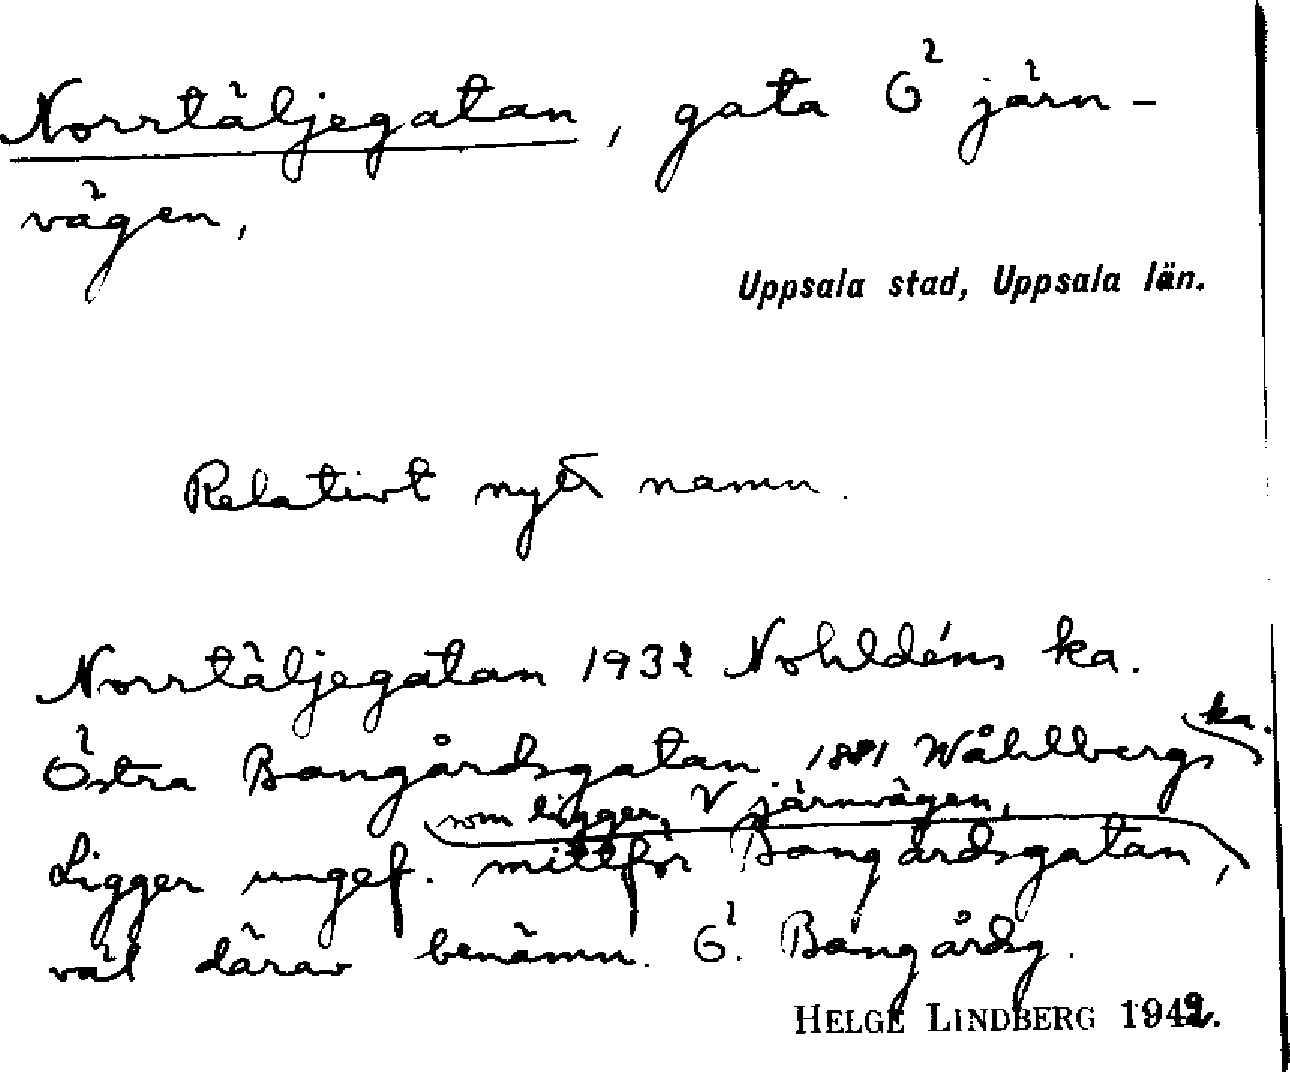 Norrtäljegatan, gata Ö järn-
vägen,
Uppsala stad, Uppsala län.
Relativt nytt namn.
Norrtäljegatan 1932 Nohldéns ka.
Östra Bangårdsgatan 1881 Wåhlbergs ka.
som ligger V järnvägen,
Ligger ungef. mittför Bangårdsgatan,
väl därav benämn. Ö. Bangårdsg.
HELGE LINDBERG 1942.